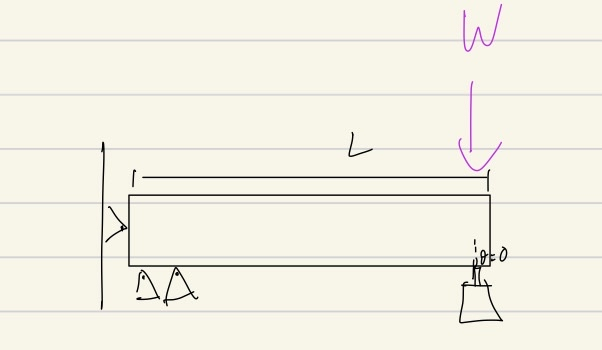 W
L
θ=0